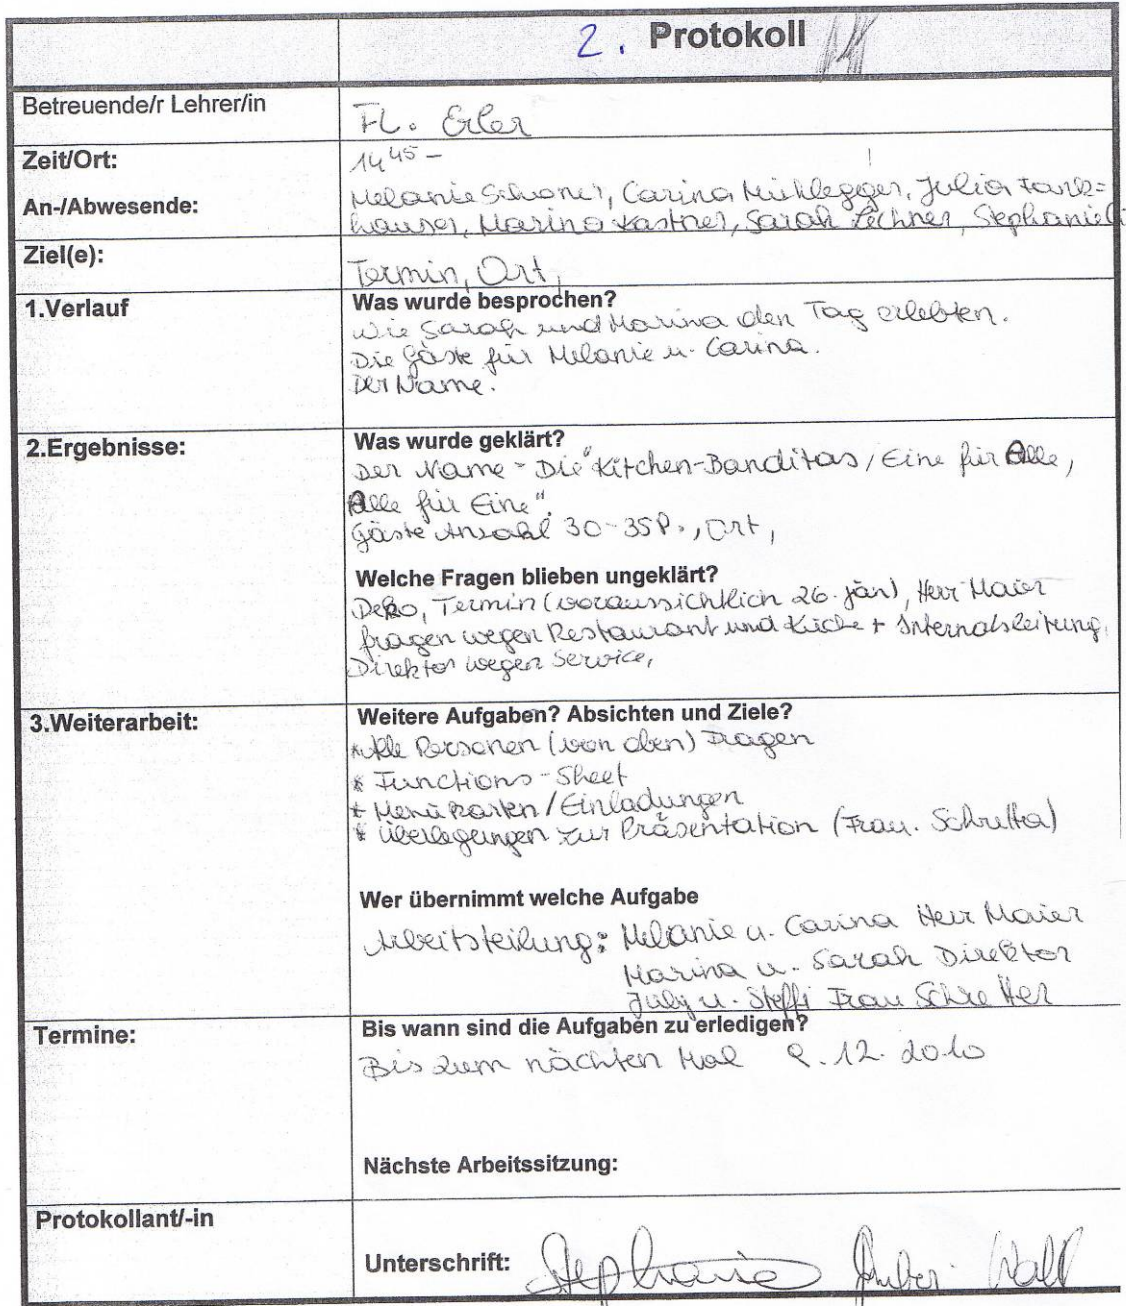 2. Protokoll
Betreuende/r Lehrer/in
FL. Erler
Zeit/Ort:
14 45 -
An-/Abwesende:
Melanie Schoner, Carina Mühlegger, Julia Fank=
hauser, Marina Kastner, Sarah Lechner, Stephanie
Ziel(e):
Termin, Ort,
1.Verlauf
Was wurde besprochen?
Wie Sarah und Marina den Tag erlebten.
Die Gäste für Melanie u. Carina.
Der Name.
2.Ergebnisse:
Was wurde geklärt?
Der Name - Die "Kitchen-Banditas / Eine für Alle,
Alle für Eine".
Gäste Anzahl 30-35P., Ort,
Welche Fragen blieben ungeklärt?
Deko, Termin (voraussichtlich 26. Jän), Herr Maier
fragen wegen Restaurant und Küche + Internatsleitung,
Direktor wegen Service,
3.Weiterarbeit:
Weitere Aufgaben? Absichten und Ziele?
* Alle Personen (von oben) Fragen
* Functions-Sheet
* Menükarten/Einladungen
* Überlegungen zur Präsentation (Frau.
Wer übernimmt welche Aufgabe
Arbeitsteilung: Melanie u. Carina Herr Maier
Marina u. Sarah Direktor
July u. Steffi Frau Schretter
Termine:
Bis wann sind die Aufgaben zu erledigen?
Bis zum nächten Mal 12. 2010
Nächste Arbeitssitzung:
Protokollant/-in
Unterschrift: Stephanie